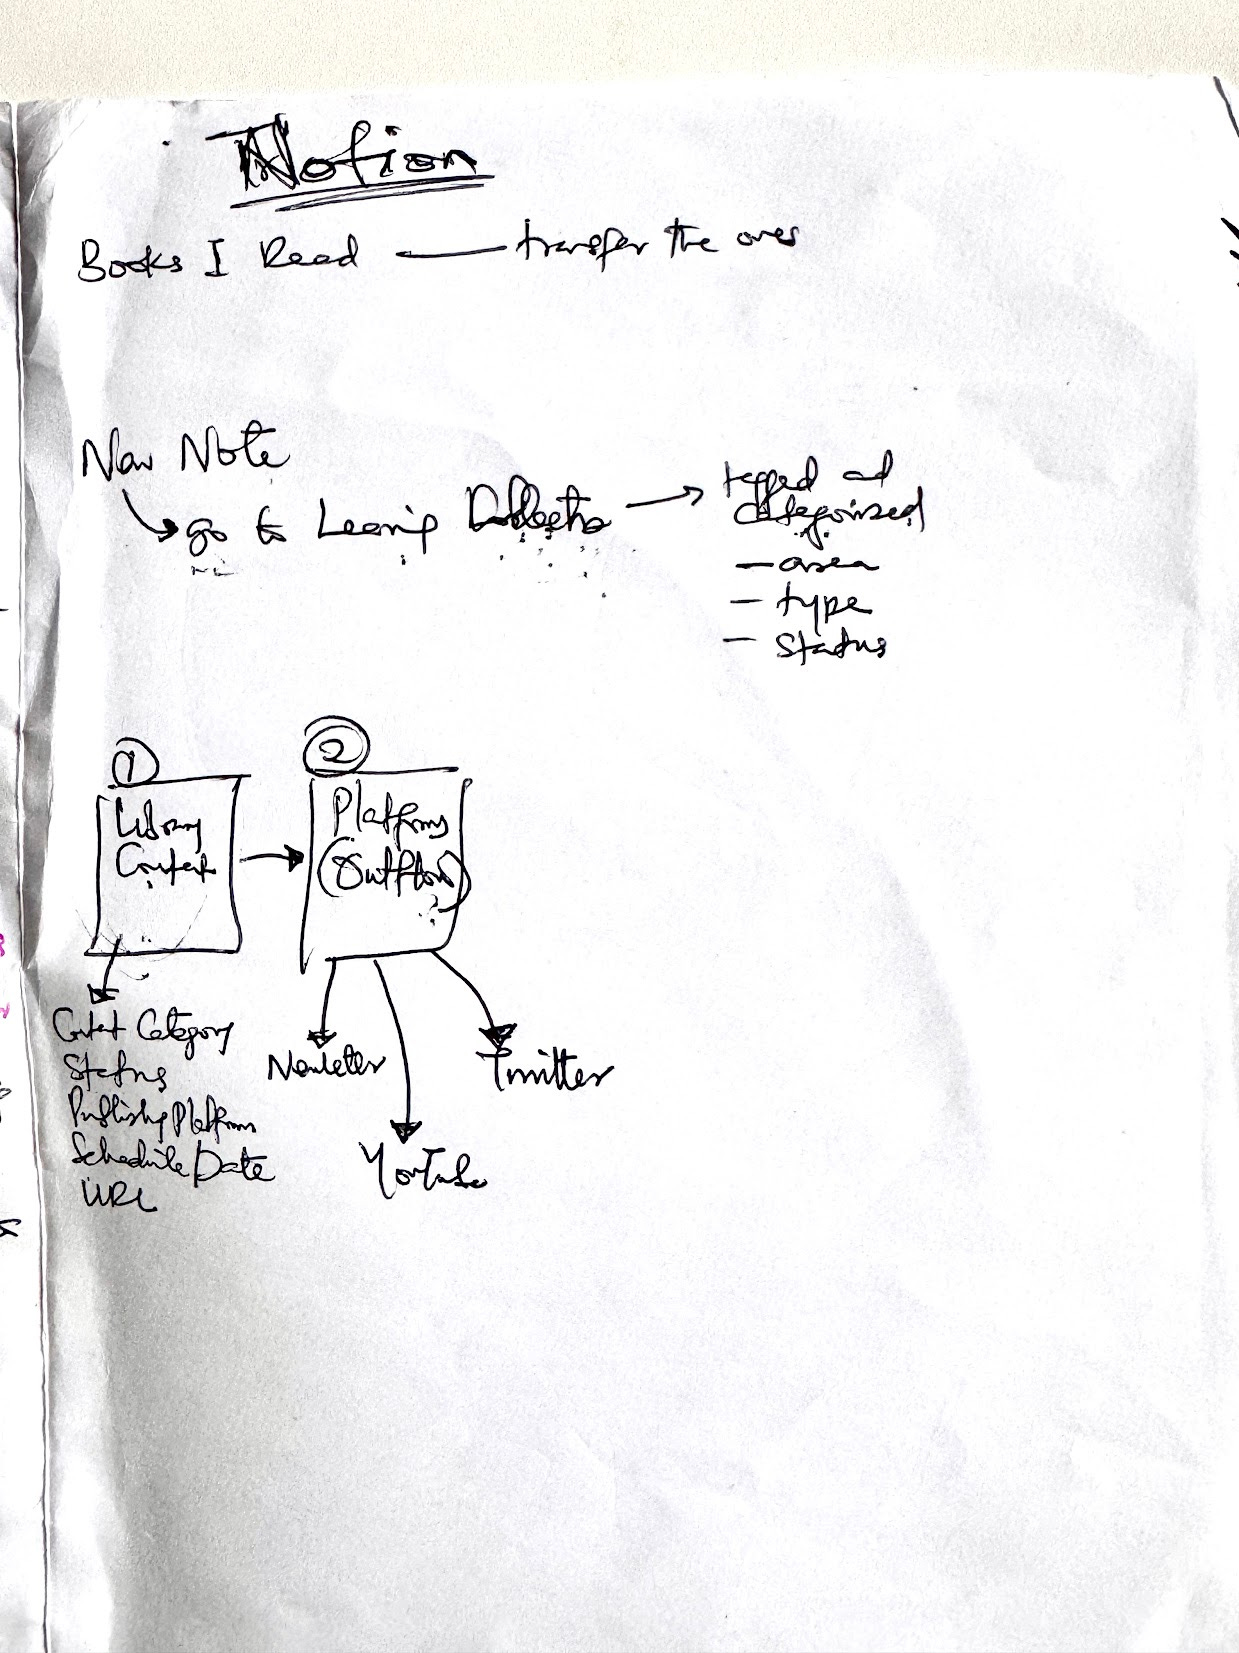 Notion
Books I Read — transfer the ones
New Note
go to Learning → tagged and
categorized
– area
– type
– status
1
Library
Content
2
Platforms
(Outflow)
Content Category
Status
Publishing Platform
Schedule/Date
URL
Newsletter
Twitter
YouTube